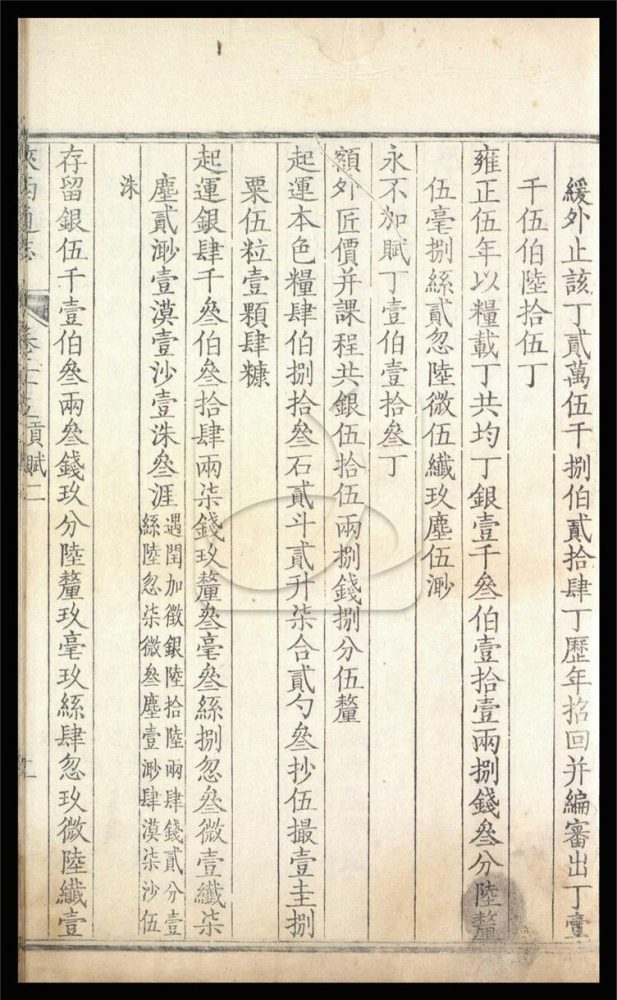 緩外止該丁貳萬伍千捌伯貳拾肆丁歷年招回并編審出丁壹
千伍伯陸拾伍丁
雍正伍年以糧載丁共均丁銀壹千叁伯壹拾壹兩捌錢叁分陸釐
伍毫捌絲貳忽陸微伍纖玖塵伍渺
永不加賦丁壹伯壹拾叁丁
額外匠價并課程共銀伍拾伍兩捌錢捌分伍釐
起運本色糧肆伯捌拾叁石貳斗貳升柒合貳勺叁抄伍撮壹圭捌
粟伍粒壹顆肆糠
起運銀肆千叁伯叁拾肆兩柒錢玖釐叁毫叁絲捌忽叁微壹纖柒
塵貳渺壹漠壹沙壹洙叁涯
遇閏加徵銀陸拾陸兩肆錢貳分壹
絲陸忽柒微叁塵壹渺肆漠柒沙伍
洙
存留銀伍千壹伯叁兩叁錢玖分陸釐玖毫玖絲肆忽玖微陸纖壹
通志
卷
貢賦二